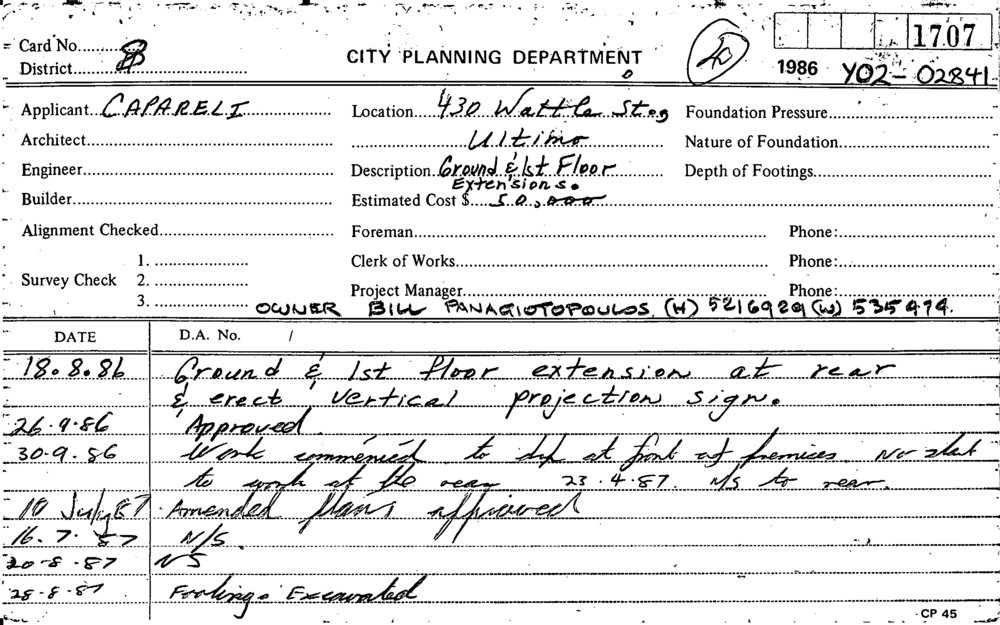 Card No. B
District
CITY PLANNING DEPARTMENT
20
1707
1986 Y02-02841
Applicant CAPARELI
Location 430 Wattle St
Foundation Pressure
Architect
Ultimo
Nature of Foundation
Engineer
Description Ground & 1st Floor
Depth of Footings
Extensions.
Builder
Estimated Cost $ 50,000
Alignment Checked
Foreman
Phone:
1.
Clerk of Works
Phone:
Survey Check 2.
Project Manager
Phone:
3.
OWNER BILL PANAGIOTOPOULOS. (H) 5216929 (W) 535474.
DATE D.A. No. /
18.8.86 Ground & 1st floor extension at rear
& erect vertical projection sign.
26.9.86 Approved
30.9.86 Work commenced to at front of premises No start
to work at the rear 23.4.87. N/S to rear.
10 July 87 Amended plans approved
16.7.87 N/S.
20-8-87 NS
28.8.87 Footings Excavated
CP 45